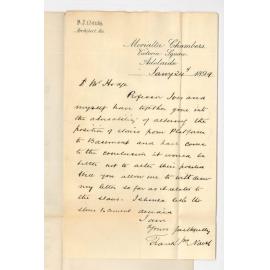 Architect &c.
Moralta Chambers,
Victoria Square,
Adelaide
Jany 24th 1894
D Mr Hodge
Professor Ives and
myself have together gone into
the advisability of altering the
position of stairs from Platform
to Basement and have come
to the conclusion it would be
better not to alter their position
Will you allow me to withdraw
my letter so far as it relates to
the stairs.
I am
Yours faithfully